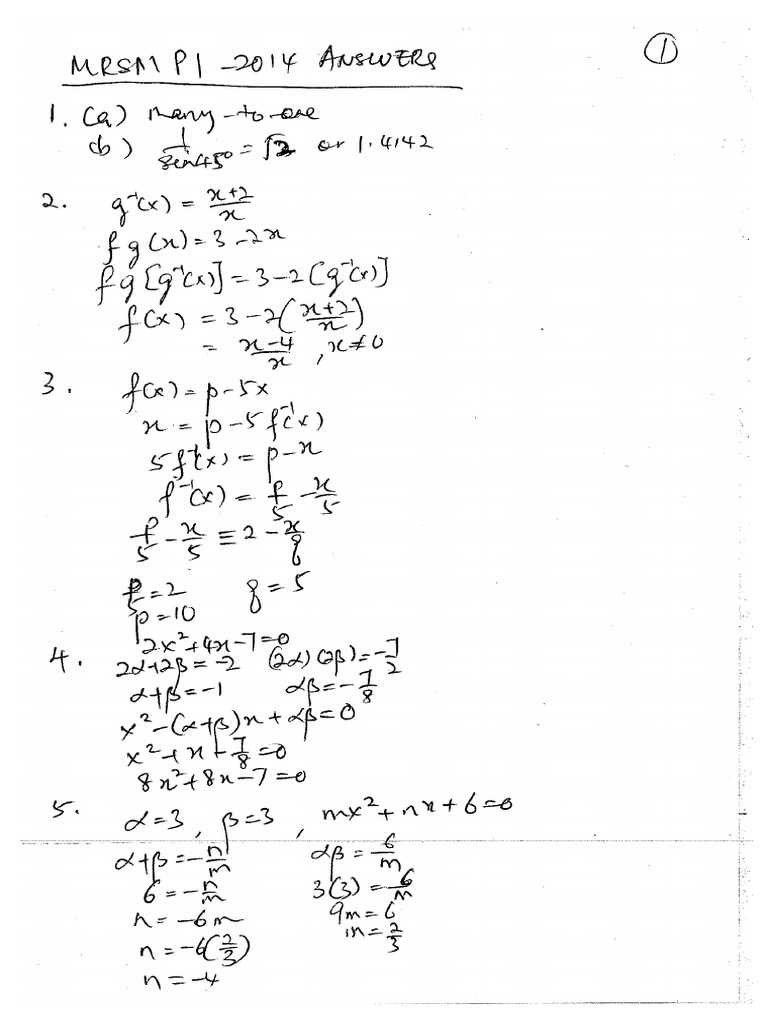 MRSM P1 -2014 ANSWERS
①
1. (a) many-to-one
(b) 1/sin45° = √2 or 1.4142
2. g⁻¹(x) = (x+2)/x
fg(x) = 3 - 2x
fg[g⁻¹(x)] = 3 - 2[g⁻¹(x)]
f(x) = 3 - 2((x+2)/x)
= (x-4)/x , x≠0
3. f(x) = p - 5x
x = p - 5f⁻¹(x)
5f⁻¹(x) = p - x
f⁻¹(x) = p/5 - x/5
p/5 - x/5 ≡ 2 - x/q
p/5 = 2 q = 5
p = 10
4. 2x² + 4x - 7 = 0
2α+2β = -2 (2α)(2β) = -7/2
α+β = -1 αβ = -7/8
x² - (α+β)x + αβ = 0
x² + x - 7/8 = 0
8x² + 8x - 7 = 0
5. α = 3 , β = 3 , mx² + nx + 6 = 0
α+β = -n/m αβ = 6/m
6 = -n/m 3(3) = 6/m
n = -6m 9m = 6
n = -6(2/3) m = 2/3
n = -4